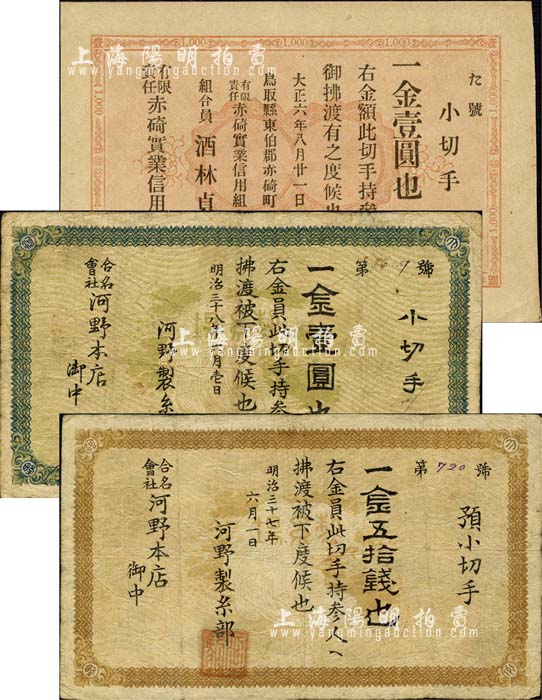 た號
小切手
一金壹圓也
右金額此切手持参
御拂渡有之度候也
大正六年八月廿一日
鳥取縣東伯郡赤碕町
有限責任赤碕實業信用組
組合員 酒林貞
有限責任赤碕實業信用
1,000
1,000
上海陽明拍賣
www.yangmingauction.com
第 9 號
小切手
一金壹圓也
右金員此切手持参
拂渡被下度候也
明治三十八年 月壱日
河野製糸
合名會社河野本店
御中
上海陽明拍賣
www.yangmingauction.com
第 720 號
預小切手
一金五拾錢也
右金員此切手持参人へ
拂渡被下度候也
明治三十七年
六月一日
河野製糸部
合名會社河野本店
御中
上海陽明拍賣
www.yangmingauction.com